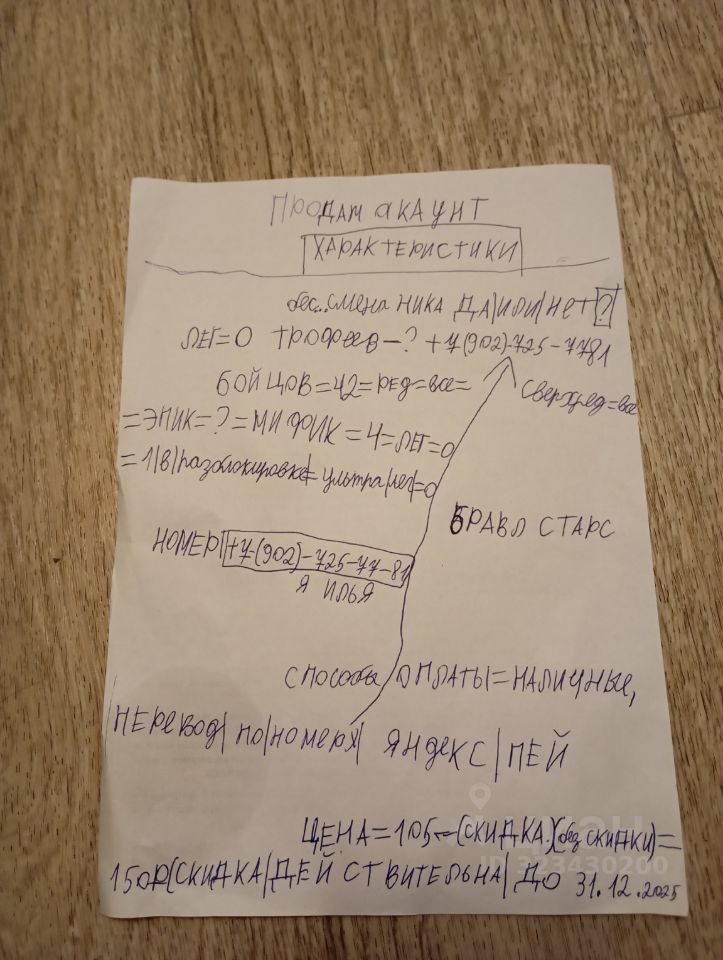 ПРОДАМ АКАУНТ
ХАРАКТЕРИСТИКИ
бес..смена НИКА ДА|ИЛИ|НЕТ?
ЛЕГ=0 ТРОФЕЕВ-? +7(902)-725-7781
БОЙЦОВ=42=РЕД=все= сверхред=все
=ЭПИК=?=МИФИК=4=ЛЕГ=0
=1|В|разблокировке|=ультра|лег|=0
БРАВЛ СТАРС
НОМЕР|+7-(902)-725-77-81
Я ИЛЬЯ
СПОСОБЫ ОПЛАТЫ=НАЛИЧНЫЕ,
|ПЕРЕВОД|ПО|НОМЕРУ| ЯНДЕКС|ПЕЙ
ЦЕНА=105-(СКИДКА.)(без СКИДКИ)=
ID 323430200
150₽(СКИДКА|ДЕЙСТВИТЕЛЬНА|ДО 31.12.2025